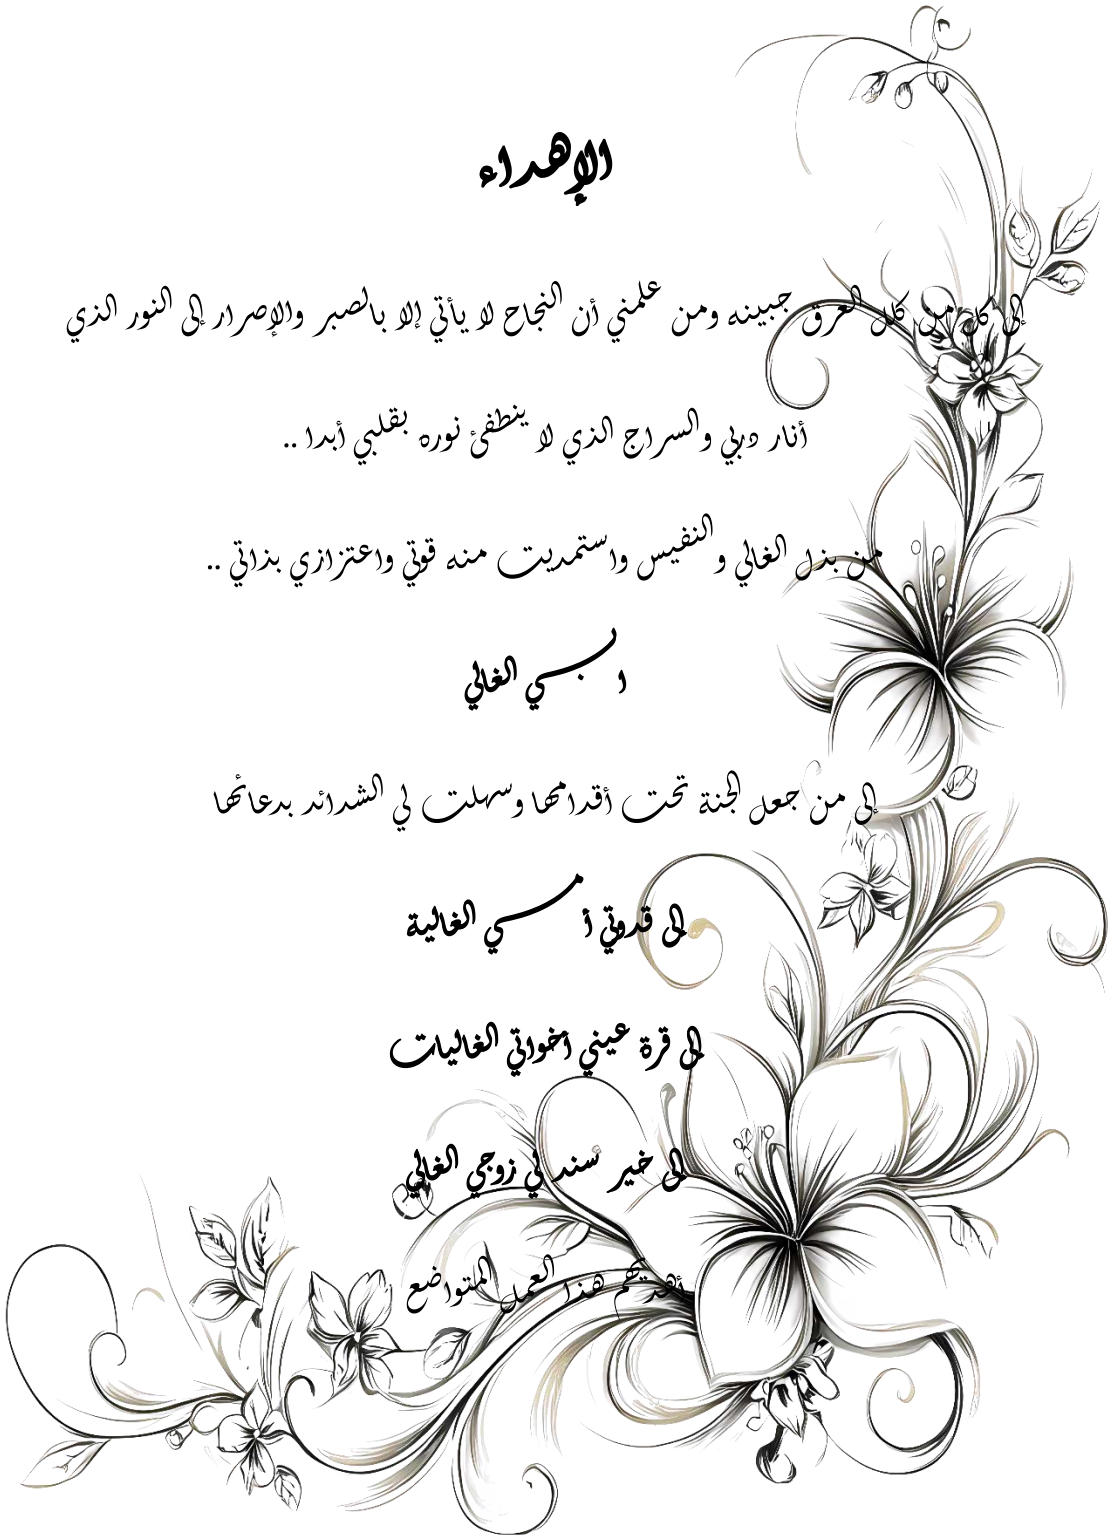 الإهداء
إلى كل من كلل العرق جبينه ومن علمني أن النجاح لا يأتي إلا بالصبر والإصرار إلى النور الذي
أنار دربي والسراج الذي لا ينطفئ نوره بقلبي أبدا ..
من بذل الغالي والنفيس واستمديت منه قوتي واعتزازي بذاتي ..
ابـــي الغالي
إلى من جعل الجنة تحت أقدامها وسهلت لي الشدائد بدعائها
إلى قدوتي أمـــي الغالية
إلى قرة عيني أخواتي الغاليات
إلى خير سند لي زوجي الغالي
أهديهم هذا العمل المتواضع